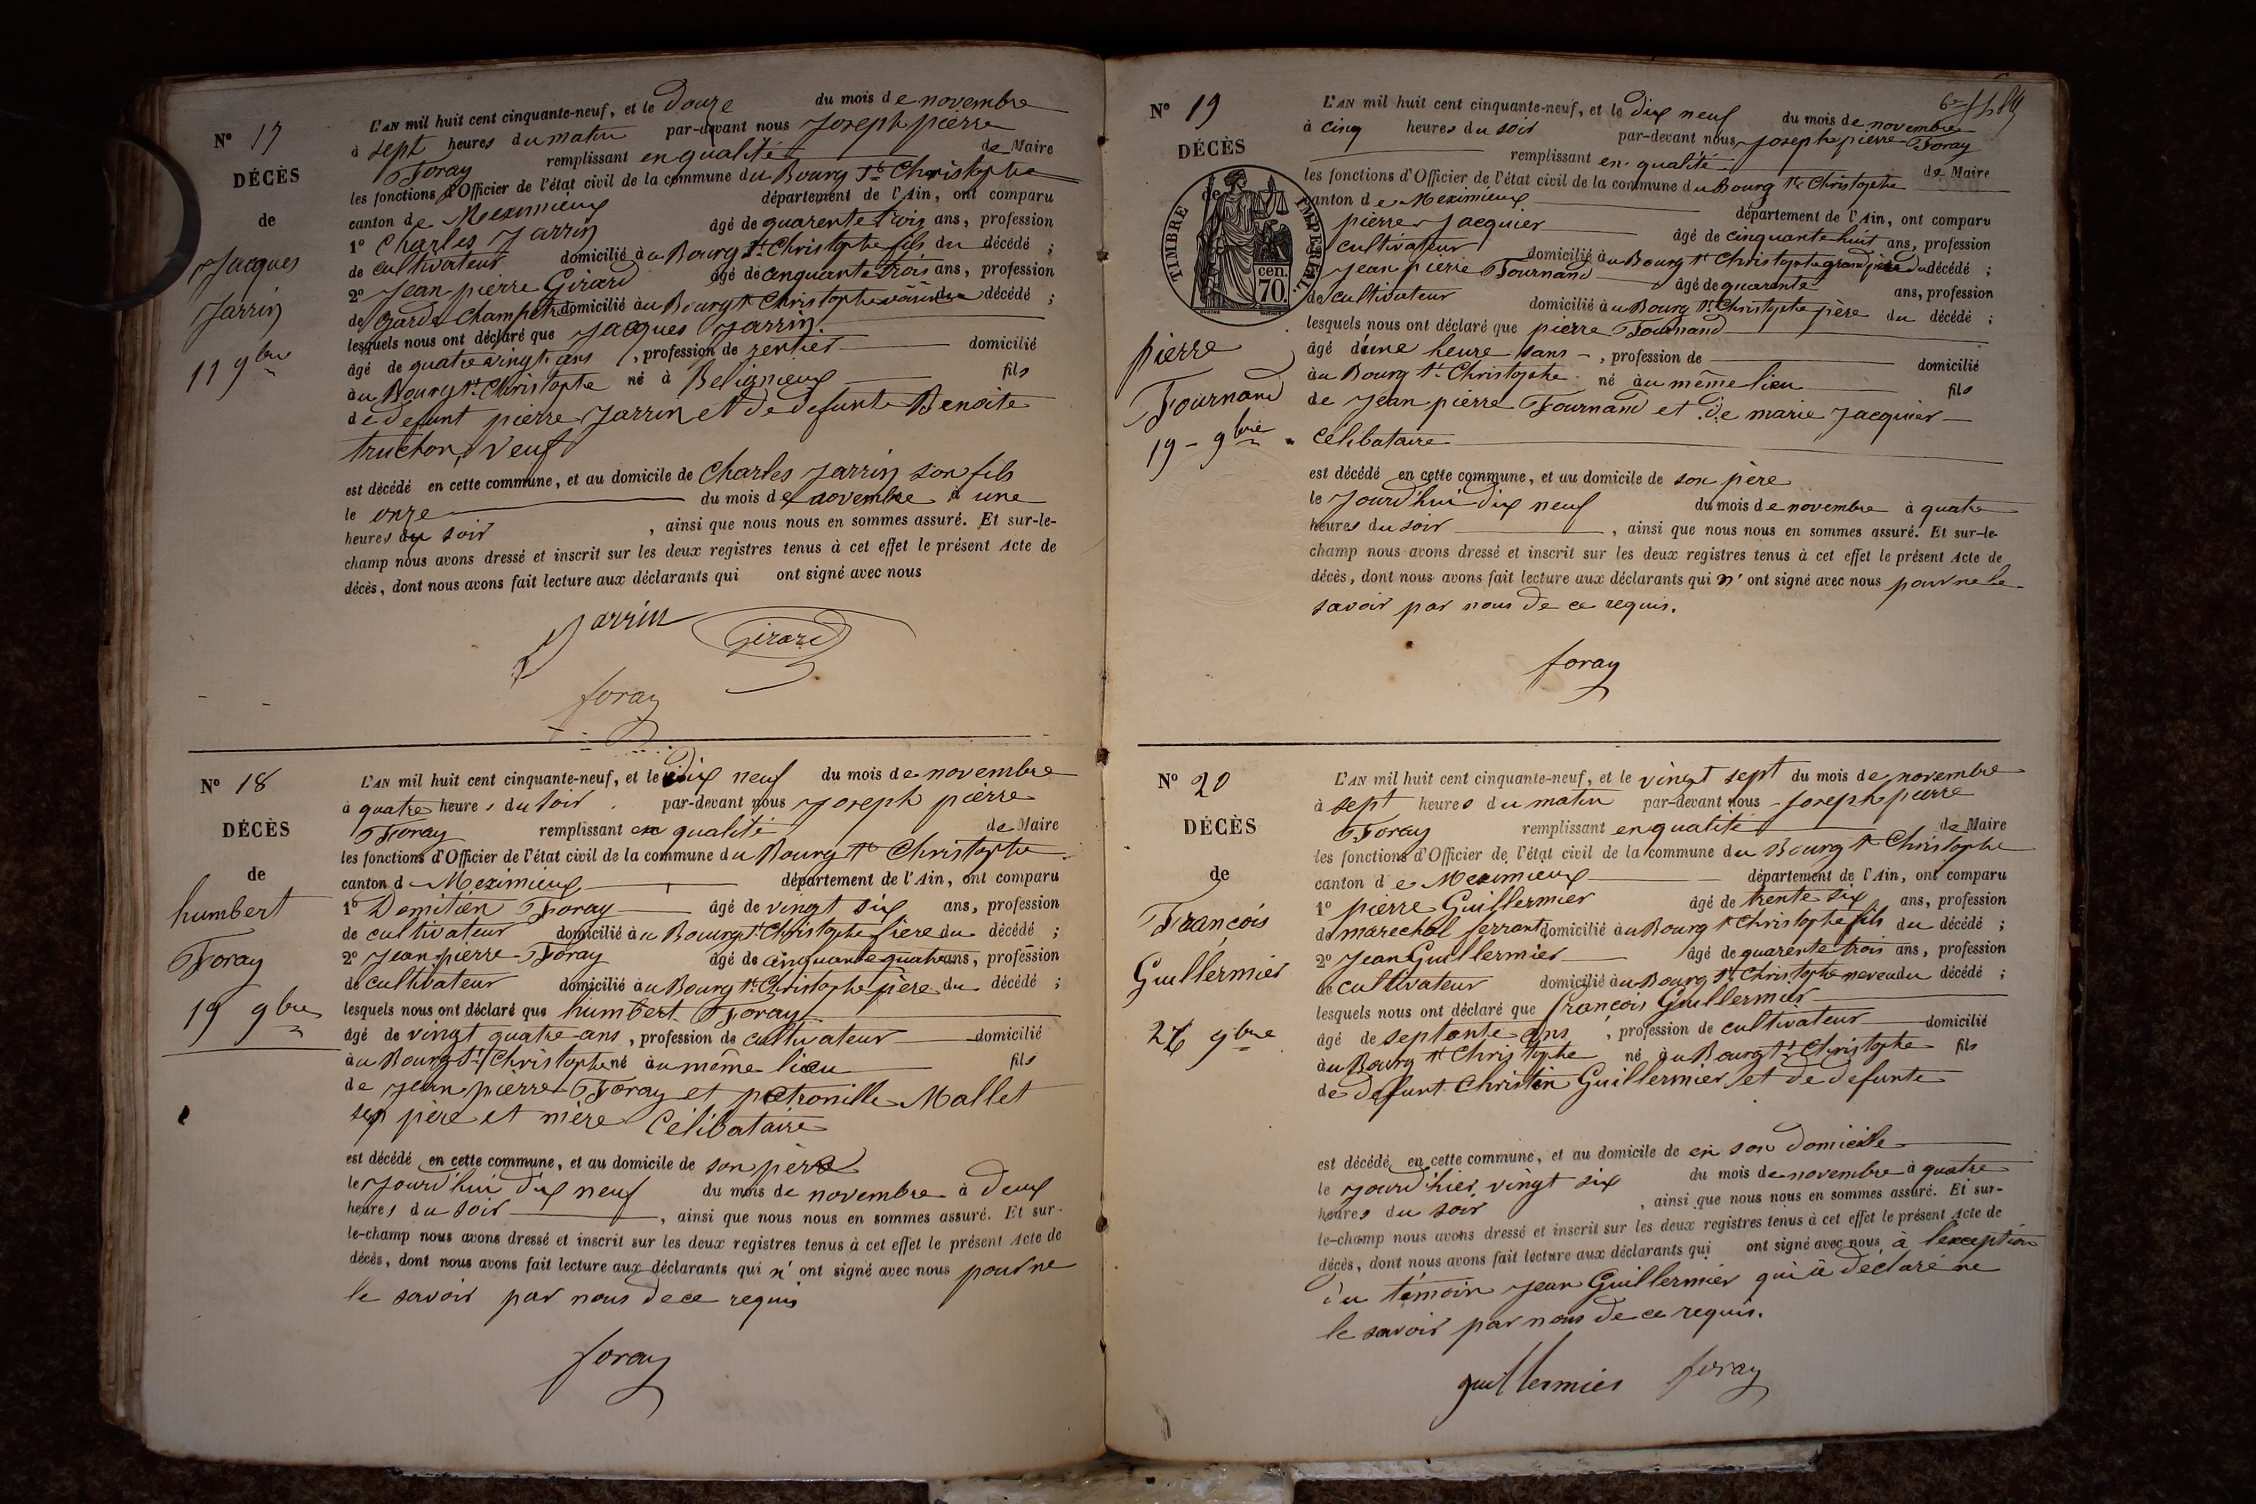 N° 17
DÉCÈS
de
Jacques
Jarrin
11 9bre
L'AN mil huit cent cinquante-neuf, et le douze du mois de novembre
à sept heures du matin par-devant nous Joseph pierre
Foray remplissant en qualité de Maire
les fonctions d'Officier de l'état civil de la commune du Bourg St Christophe
canton de Meximieux département de l'Ain, ont comparu
1° Charles Jarrin âgé de quarente trois ans, profession
de cultivateur domicilié au Bourg St Christophe fils du décédé ;
2° Jean pierre Girard âgé de cinquante trois ans, profession
de Garde Champetre domicilié au Bourg St Christophe voisin du décédé ;
lesquels nous ont déclaré que Jacques Jarrin
âgé de quatre vingt ans , profession de rentier domicilié
au Bourg St Christophe né à Béligneux fils
de defunt pierre Jarrin et de defunte Benoite
truchon, veuf
est décédé en cette commune, et au domicile de Charles Jarrin son fils
le onze du mois de novembre à une
heures du soir , ainsi que nous nous en sommes assuré. Et sur-le-
champ nous avons dressé et inscrit sur les deux registres tenus à cet effet le présent Acte de
décès, dont nous avons fait lecture aux déclarants qui ont signé avec nous
Jarrin Girard
foray
N° 18
DÉCÈS
de
humbert
Foray
19 9bre
L'AN mil huit cent cinquante-neuf, et le dix neuf du mois de novembre
à quatre heures du soir par-devant nous Joseph pierre
Foray remplissant en qualité de Maire
les fonctions d'Officier de l'état civil de la commune du Bourg St Christophe
canton de Meximieux département de l'Ain, ont comparu
1° Domitien Foray âgé de vingt six ans, profession
de cultivateur domicilié au Bourg St Christophe frère du décédé ;
2° Jean pierre Foray âgé de cinquante quatre ans, profession
de cultivateur domicilié au Bourg St Christophe père du décédé ;
lesquels nous ont déclaré que humbert Foray
âgé de vingt quatre ans , profession de cultivateur domicilié
au Bourg St Christophe né au même lieu fils
de Jean pierre Foray et petronille Mallet
ses père et mère Célibataire
est décédé en cette commune, et au domicile de son père
le jourd'hui dix neuf du mois de novembre à deux
heures du soir , ainsi que nous nous en sommes assuré. Et sur-
le-champ nous avons dressé et inscrit sur les deux registres tenus à cet effet le présent Acte de
décès, dont nous avons fait lecture aux déclarants qui n'ont signé avec nous pour ne
le savoir par nous de ce requis
foray
N° 19
DÉCÈS
de
TIMBRE IMPERIAL
70. cen.
pierre
Fournand
19 - 9bre
L'AN mil huit cent cinquante-neuf, et le dix neuf du mois de novembre
à cinq heures du soir par-devant nous Joseph pierre Foray
remplissant en qualité de Maire
les fonctions d'Officier de l'état civil de la commune du Bourg St Christophe
canton de Meximieux département de l'Ain, ont comparu
pierre Jacquier âgé de cinquante huit ans, profession
cultivateur domicilié au Bourg St Christophe grand père du décédé ;
Jean pierre Fournand âgé de quarante ans, profession
de cultivateur domicilié au Bourg St Christophe père du décédé ;
lesquels nous ont déclaré que pierre Fournand
âgé d'une heure sans - , profession de domicilié
au Bourg St Christophe né au même lieu fils
de Jean pierre Fournand et de marie Jacquier
Celibataire
est décédé en cette commune, et au domicile de son père
le Jourd'hui dix neuf du mois de novembre à quatre
heures du soir , ainsi que nous nous en sommes assuré. Et sur-le-
champ nous avons dressé et inscrit sur les deux registres tenus à cet effet le présent Acte de
décès, dont nous avons fait lecture aux déclarants qui n'ont signé avec nous pour ne le
savoir par nous de ce requis.
foray
N° 20
DÉCÈS
de
François
Guillermier
26 9bre
L'AN mil huit cent cinquante-neuf, et le vingt sept du mois de novembre
à sept heures du matin par-devant nous Joseph pierre
Foray remplissant en qualité de Maire
les fonctions d'Officier de l'état civil de la commune du Bourg St Christophe
canton de Meximieux département de l'Ain, ont comparu
1° pierre Guillermier âgé de trente six ans, profession
de marechal ferrant domicilié au Bourg St Christophe fils du décédé ;
2° Jean Guillermier âgé de quarente trois ans, profession
de cultivateur domicilié au Bourg St Christophe neveu du décédé ;
lesquels nous ont déclaré que françois Guillermier
âgé de septante ans , profession de cultivateur domicilié
au Bourg St Christophe né au Bourg St Christophe fils
de defunt Christin Guillermier et de defunte
est décédé en cette commune, et au domicile de en son domicile
le jourd'hier vingt six du mois de novembre à quatre
heures du soir , ainsi que nous nous en sommes assuré. Et sur-
le-champ nous avons dressé et inscrit sur les deux registres tenus à cet effet le présent Acte de
décès, dont nous avons fait lecture aux déclarants qui ont signé avec nous à l'exception
du témoin Jean Guillermier qui a déclaré ne
le savoir par nous de ce requis.
guillermier foray